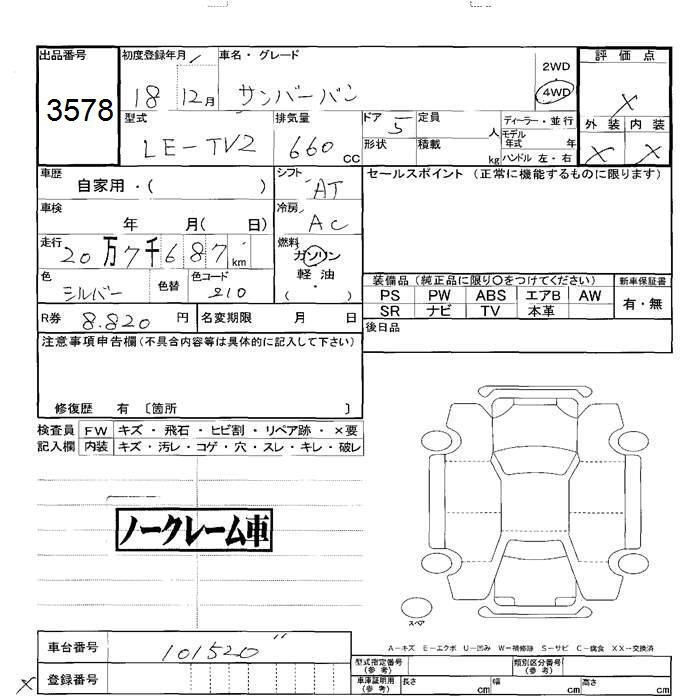 出品番号 初度登録年月 車名・グレード 評価点
3578 18 12月 サンバーバン 2WD 4WD X
型式 排気量 ドア 定員 ディーラー・並行 外装 内装
LE-TV2 660 cc 5 人 モデル年式 年 X X
形状 積載 kg ハンドル 左・右
車歴 自家用・( ) シフト AT セールスポイント (正常に機能するものに限ります)
車検 年 月( 日) 冷房 AC
走行 20万7千687km 燃料 ガソリン
軽油・( )
色 シルバー 色替 色コード 210
装備品 (純正品に限り○をつけてください) 新車保証書
PS PW ABS エアB AW 有・無
SR ナビ TV 本革
R券 8.820 円 名変期限 月 日 後日品
注意事項申告欄(不具合内容等は具体的に記入して下さい)
修復歴 有 〔箇所 〕
検査員 FW キズ・飛石・ヒビ割・リペア跡・×要
記入欄 内装 キズ・汚レ・コゲ・穴・スレ・キレ・破レ
ノークレーム車
スペア
A-キズ E-エクボ U-凹み W-補修跡 S-サビ C-腐食 XX-交換済
車台番号 101520
X 登録番号
型式指定番号(参考) 類別区分番号(参考)
車庫証明用(参考) 長さ cm 幅 cm 高さ cm